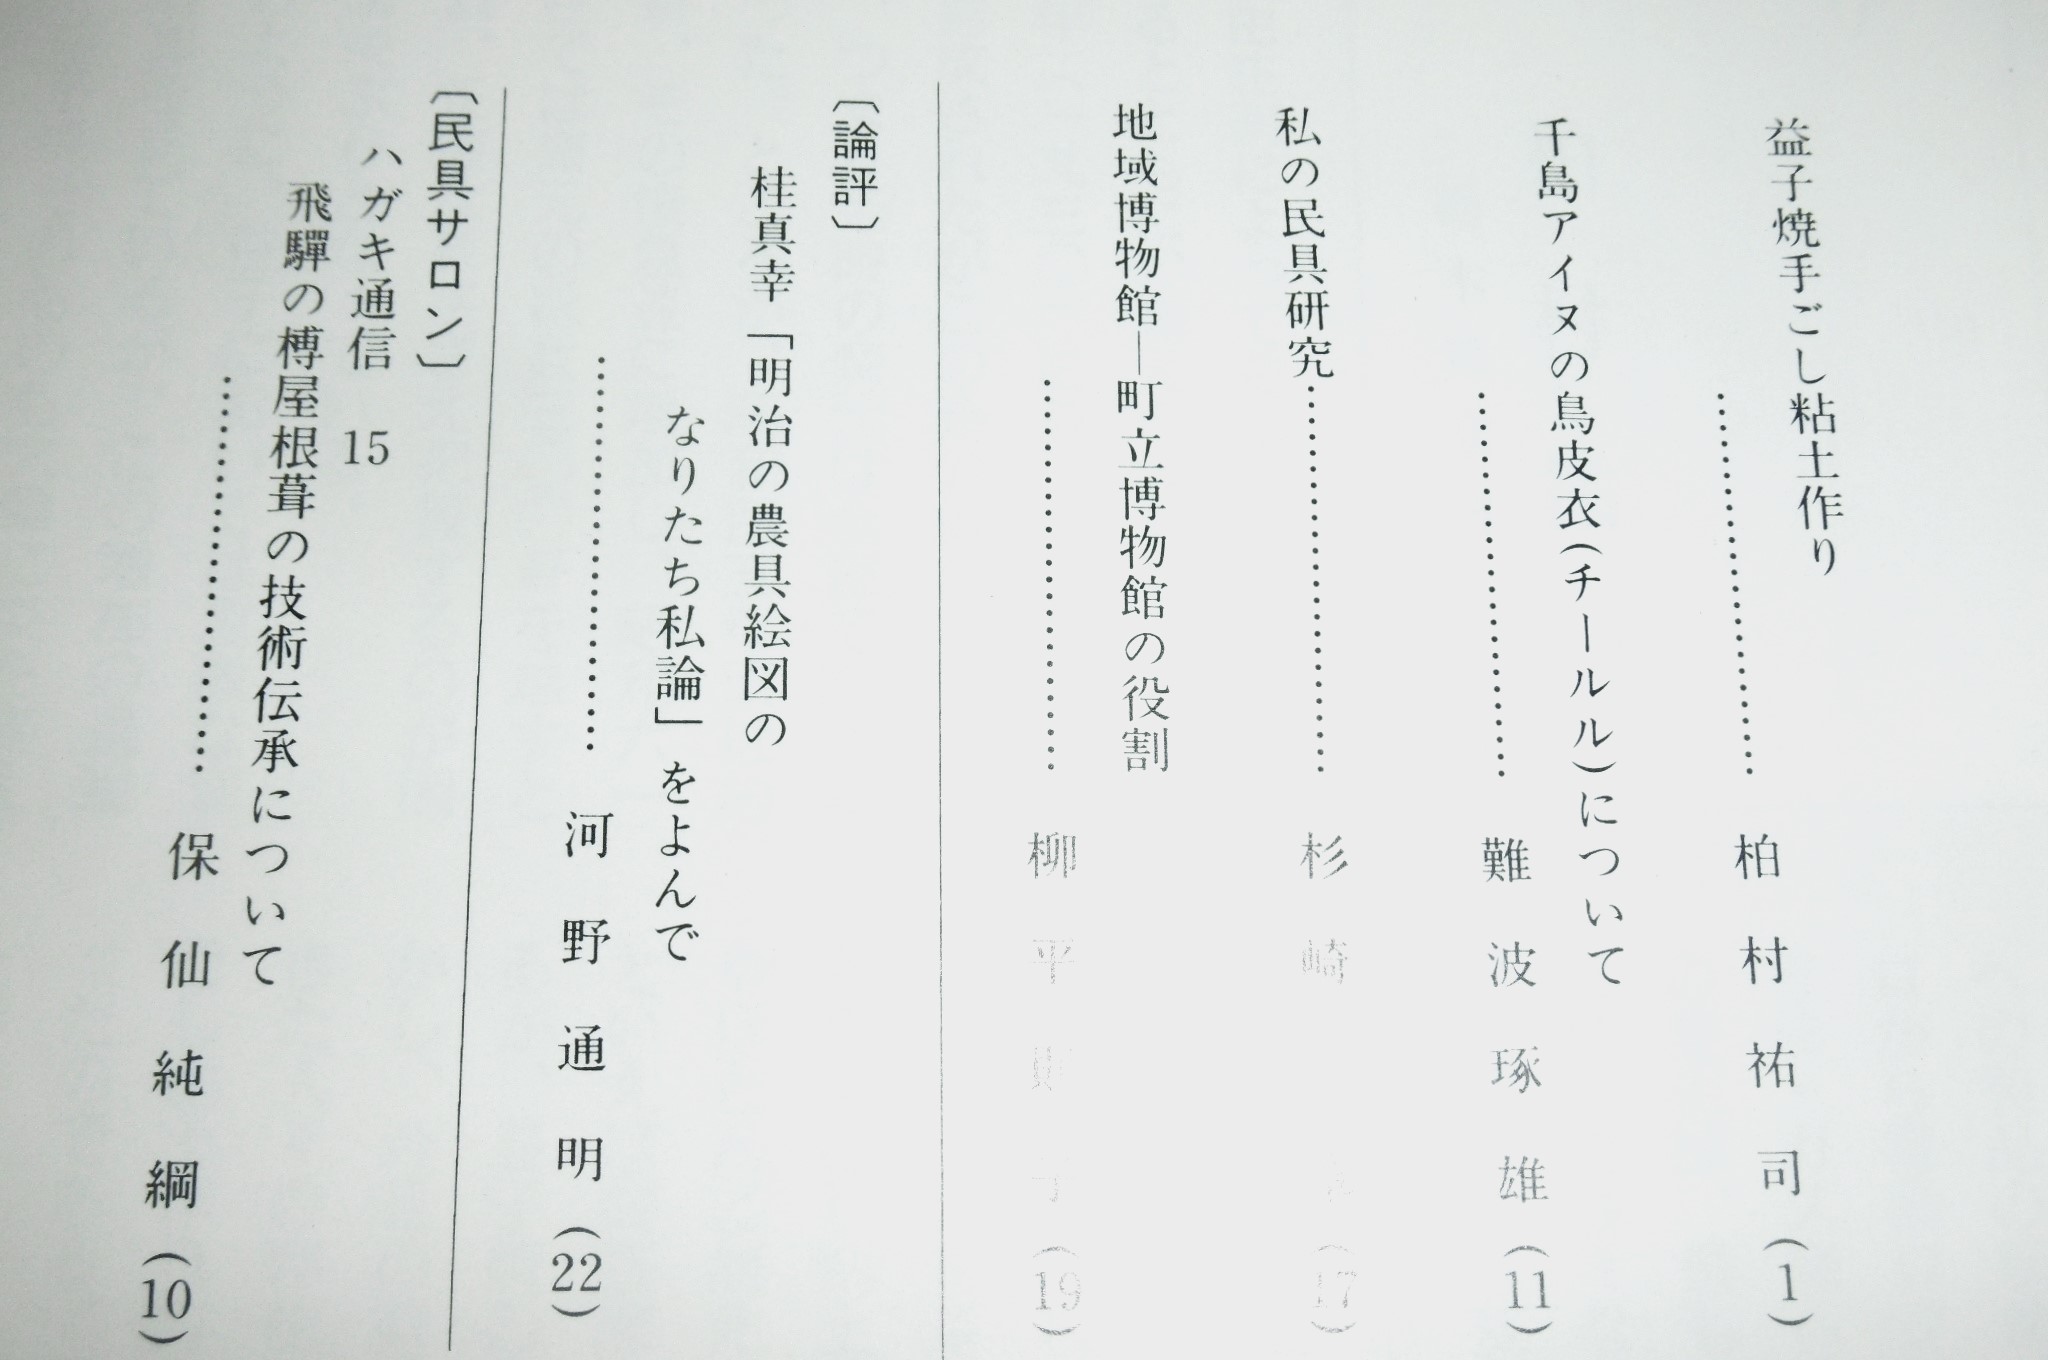 益子焼手ごし粘土作り
……………………柏村祐司(1)
千島アイヌの鳥皮衣(チールル)について
……………………難波琢雄(11)
私の民具研究……………………杉崎(17)
地域博物館—町立博物館の役割
……………………柳平則子(19)
〔論評〕
桂真幸「明治の農具絵図の
なりたち私論」をよんで
……………………河野通明(22)
〔民具サロン〕
ハガキ通信 15
飛驒の榑屋根葺の技術伝承について
……………………保仙純綱(10)